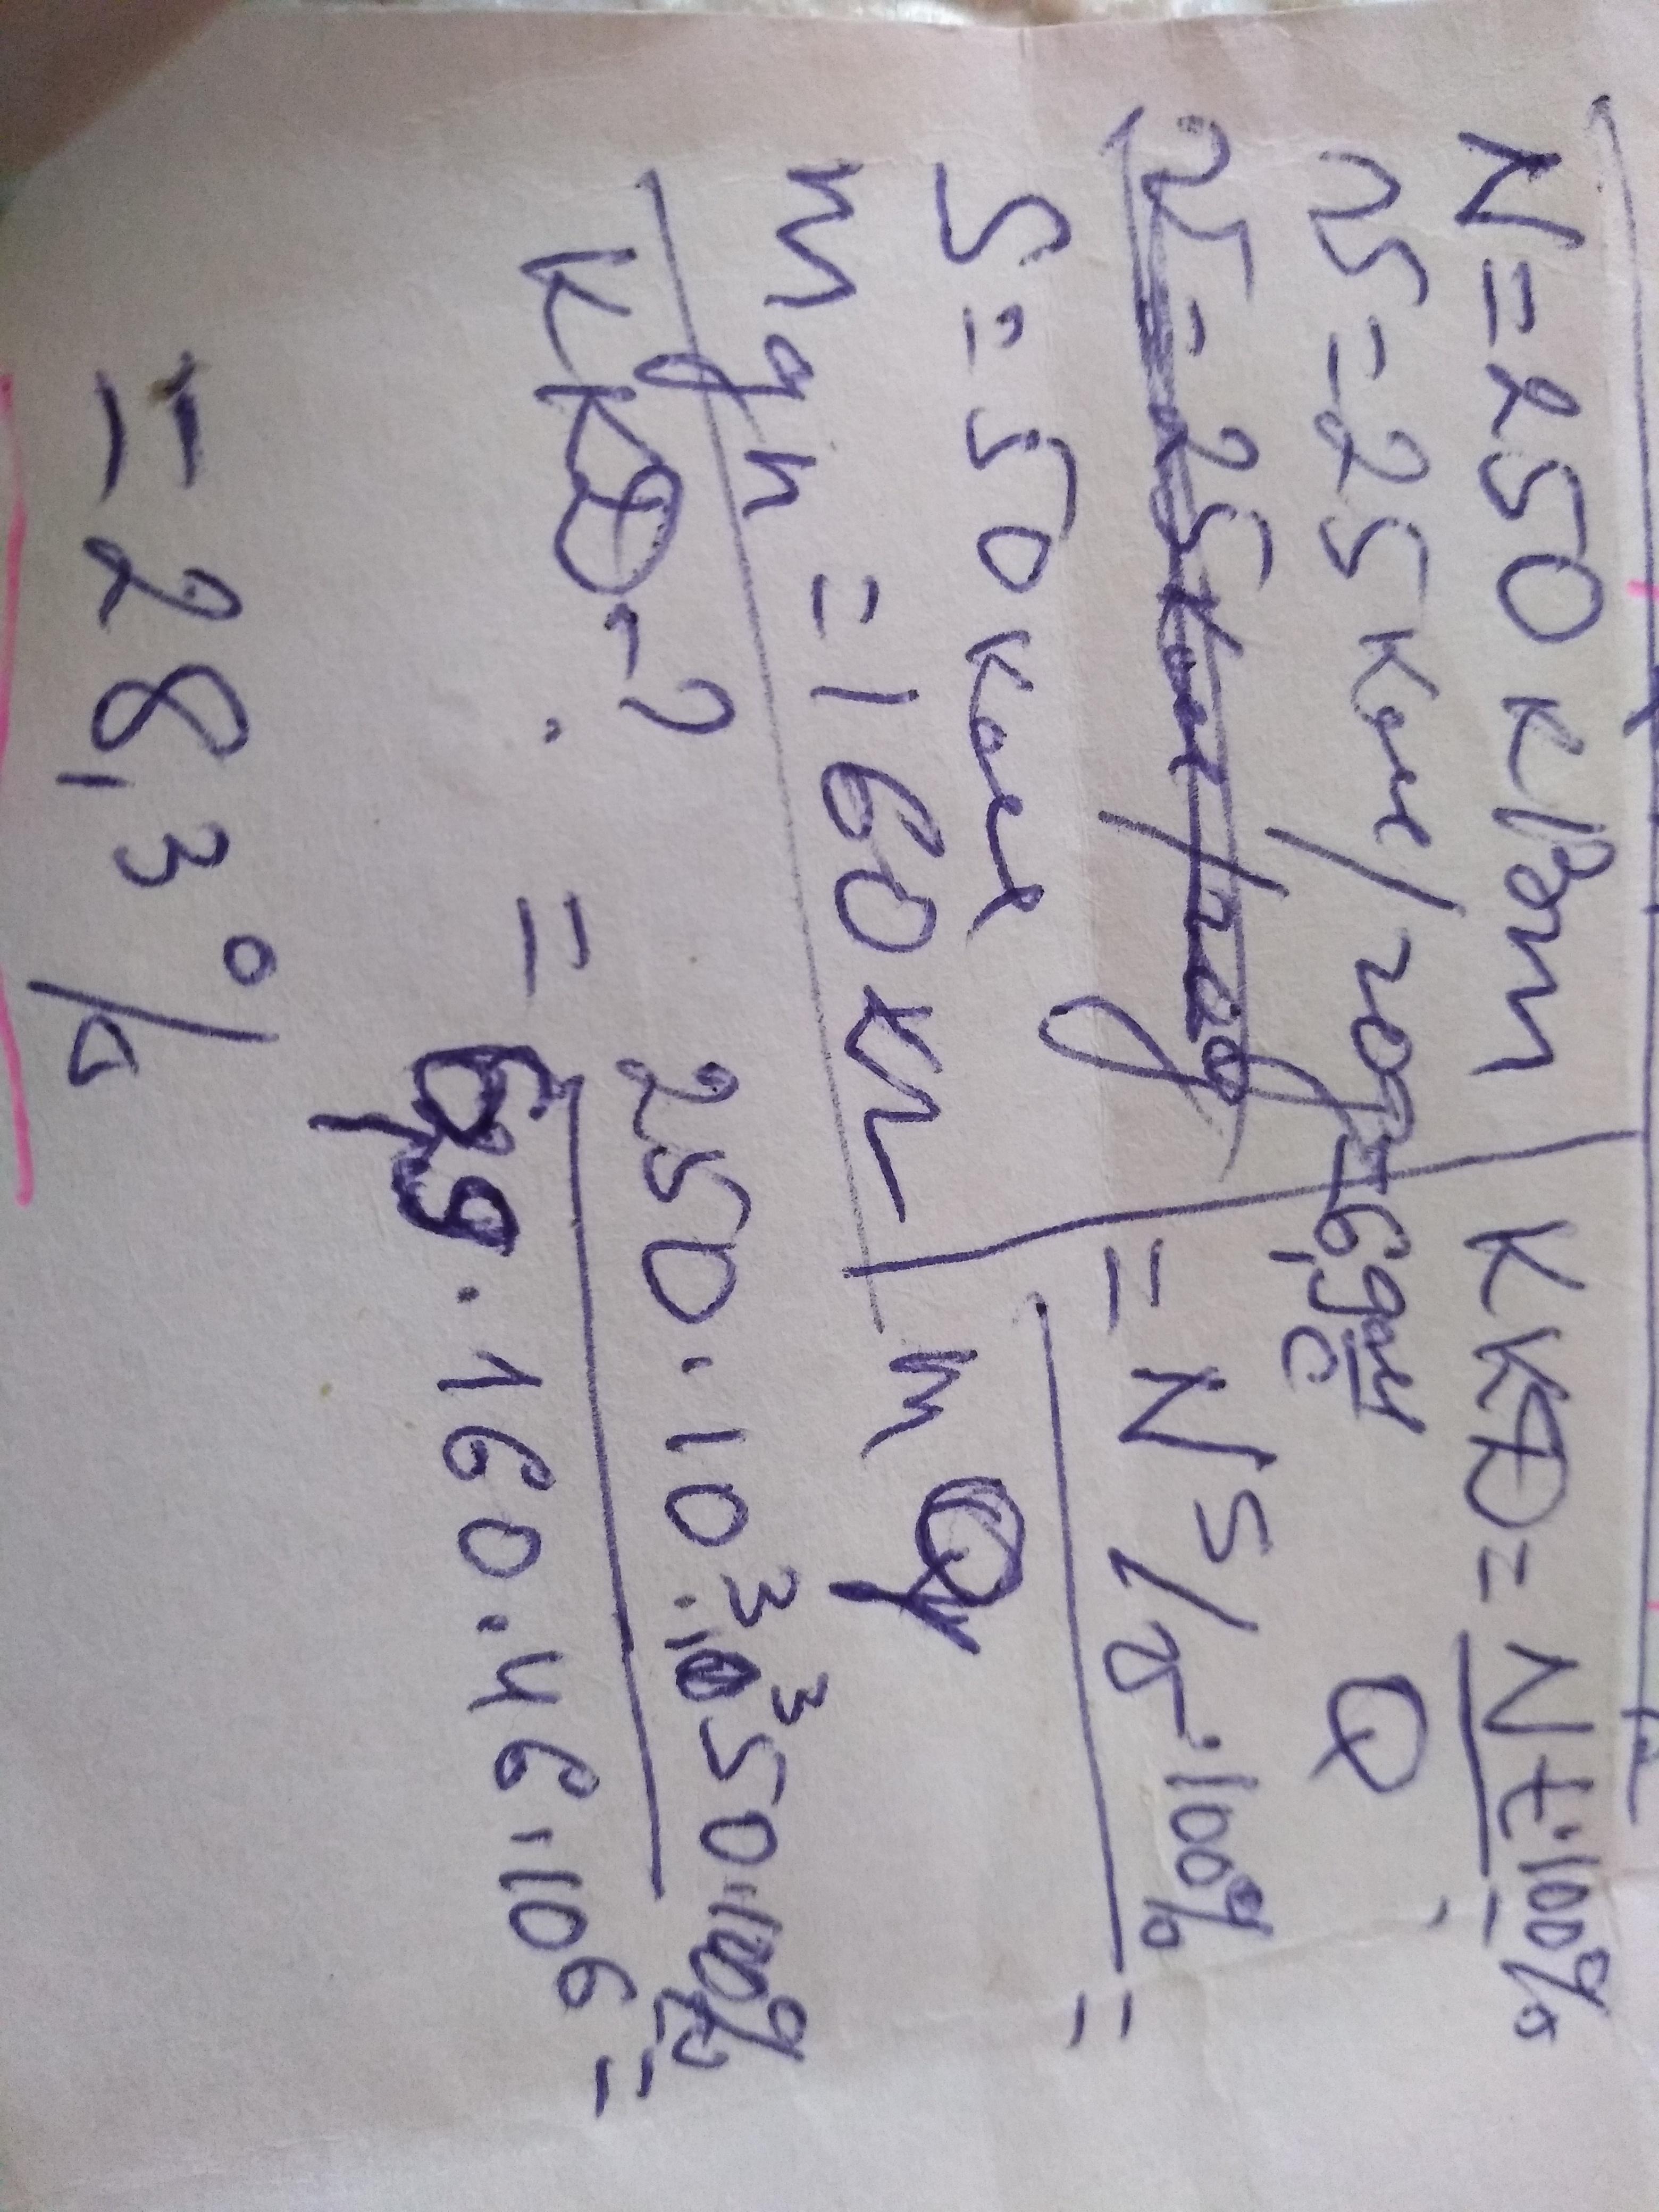 N = 250 кВт
υ = 25 км/год = 6,9 м/с
S = 50 км
mдн = 160 кг
ККД - ?
ККД = Nt · 100% / Q =
= N S/υ · 100% / mq =
= 250 · 10³ · 10³ · 50 · 100% / 6,9 · 160 · 46 · 10⁶ =
= 28,3 %